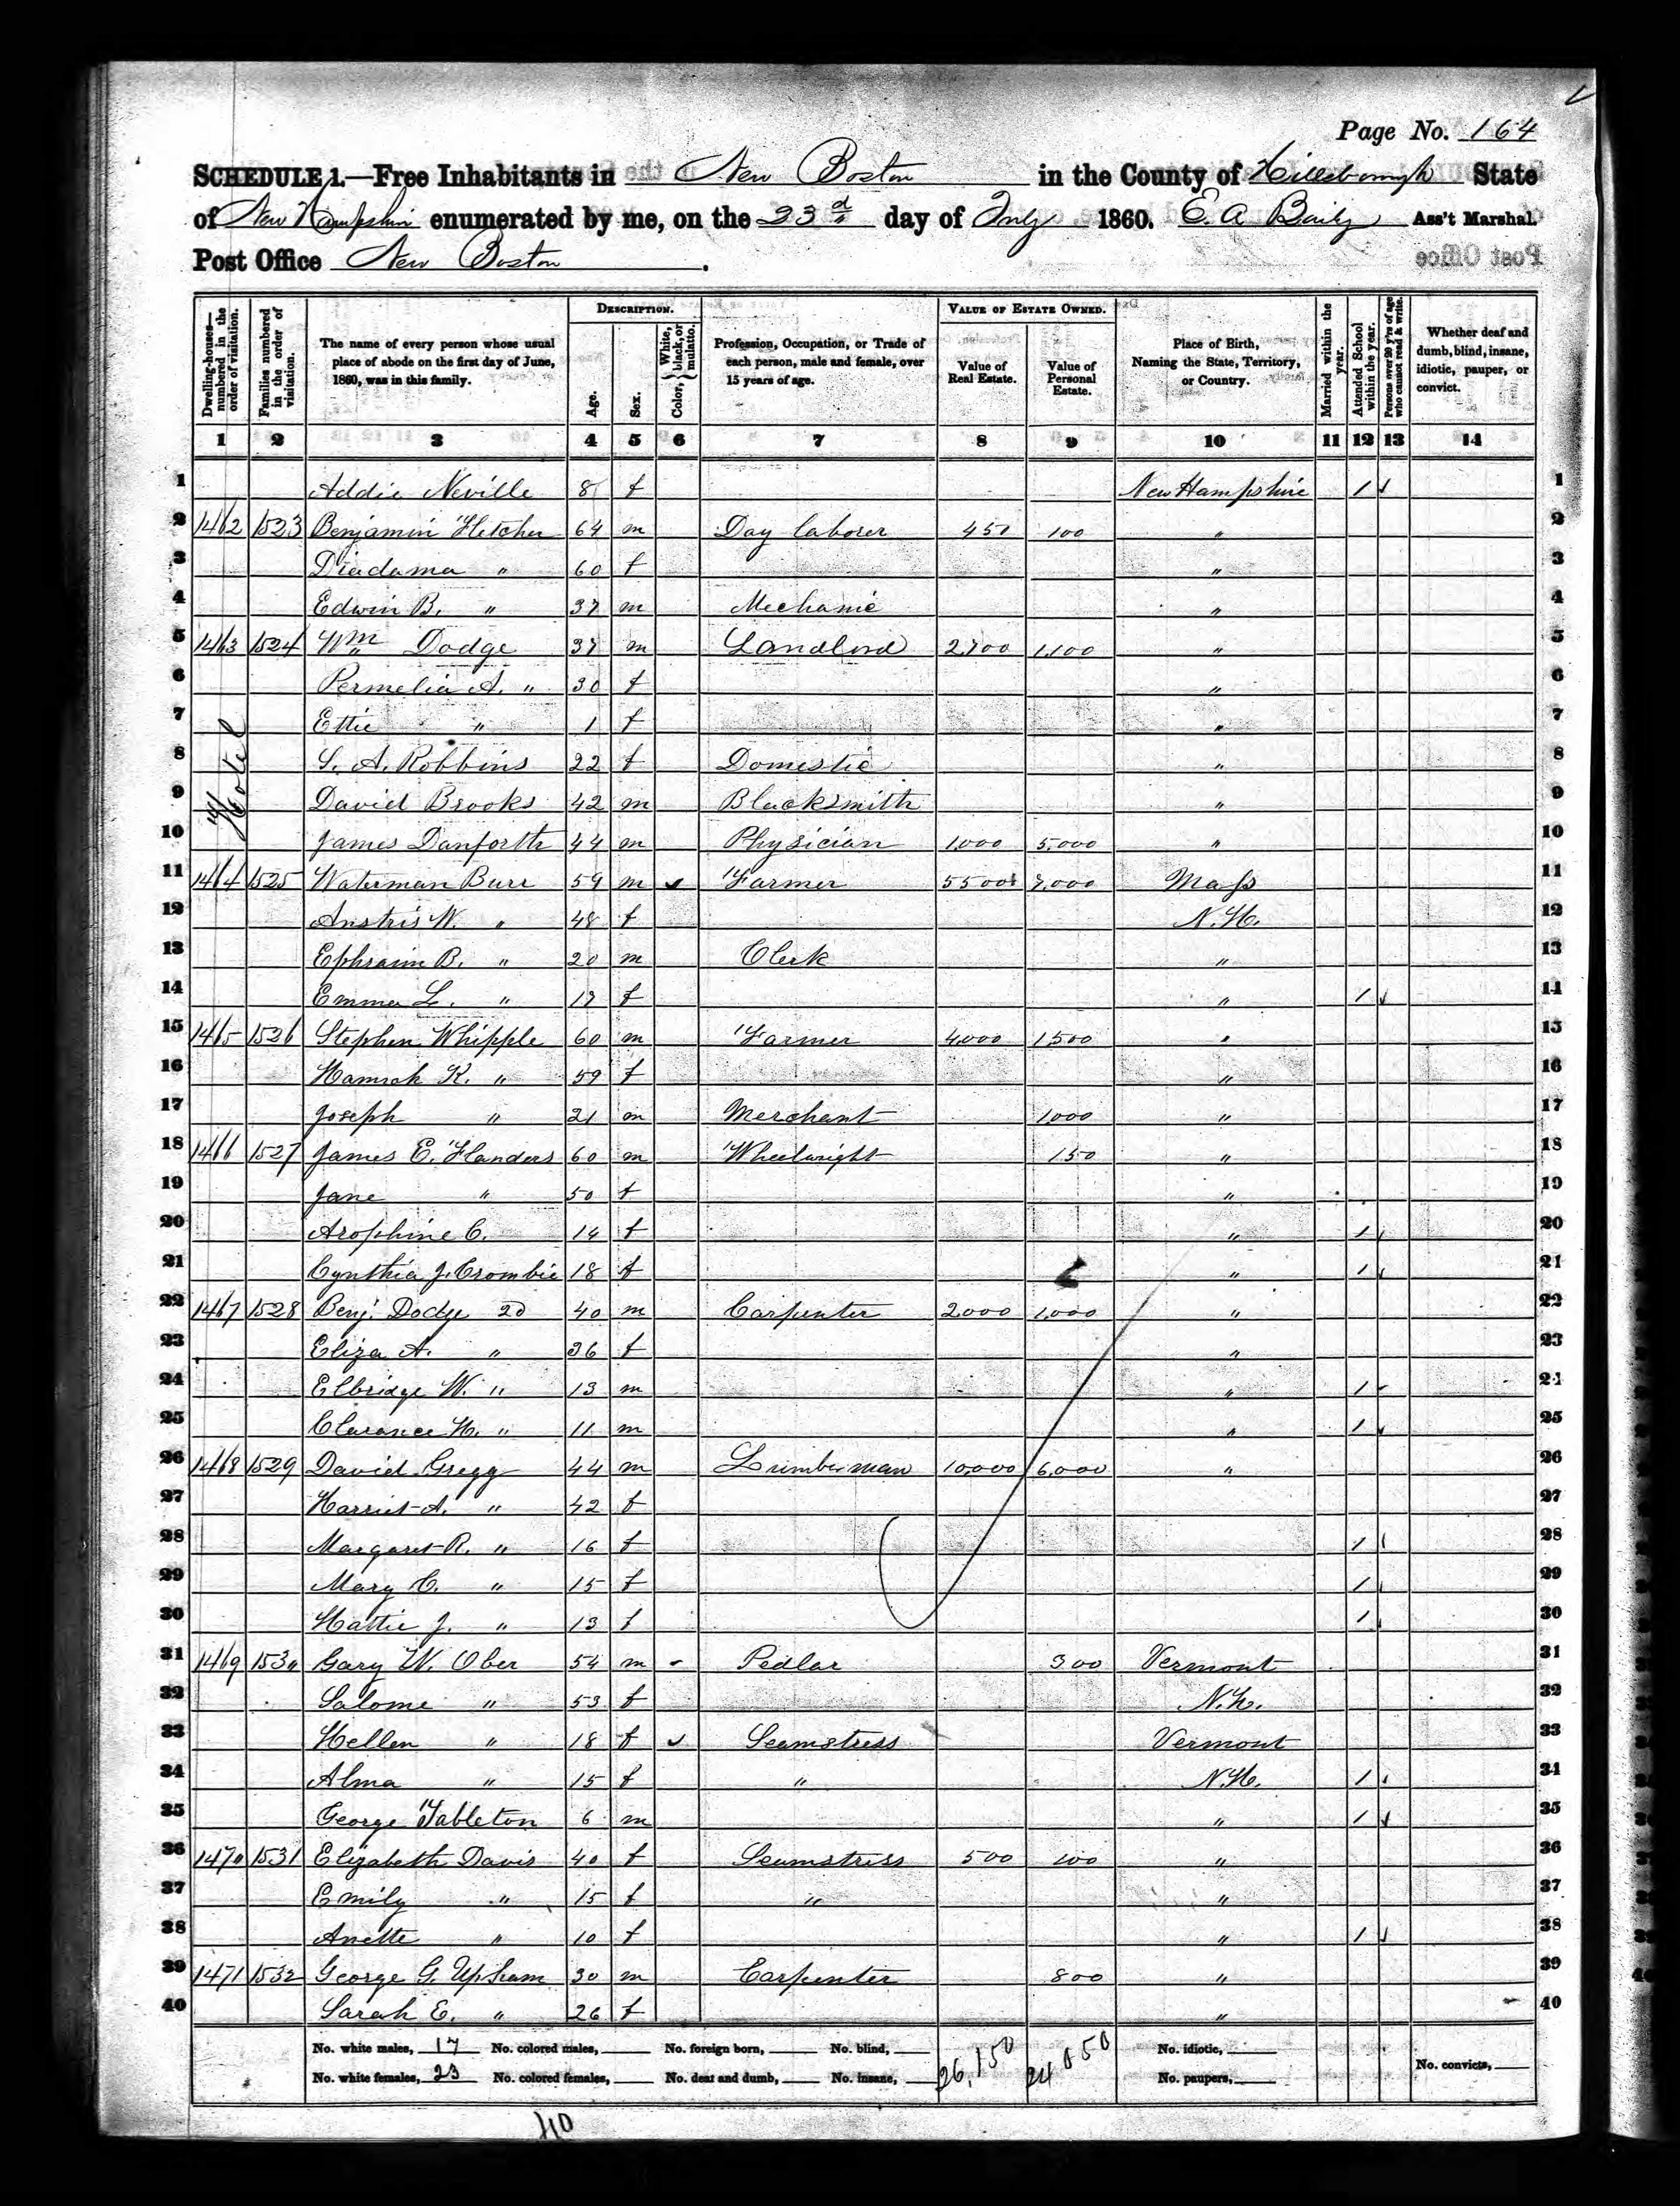 Page No. 164
SCHEDULE 1.—Free Inhabitants in New Boston in the County of Hillsborough State
of New Hampshire enumerated by me, on the 23d day of July 1860. E. A. Baily Ass't Marshal.
Post Office New Boston.
Dwelling-houses—numbered in the order of visitation. Families numbered in the order of visitation. The name of every person whose usual place of abode on the first day of June, 1860, was in this family. DESCRIPTION. Age. Sex. Color, White, black, or mulatto. Profession, Occupation, or Trade of each person, male and female, over 15 years of age. VALUE OF ESTATE OWNED. Value of Real Estate. Value of Personal Estate. Place of Birth, Naming the State, Territory, or Country. Married within the year. Attended School within the year. Persons over 20 y'rs of age who cannot read & write. Whether deaf and dumb, blind, insane, idiotic, pauper, or convict.
1 2 3 4 5 6 7 8 9 10 11 12 13 14
1 Addie Neville 8 f New Hampshire / 1
2 1462 1523 Benjamin Fletcher 64 m Day laborer 450 100 " 2
3 Diadama " 60 f " 3
4 Edwin B. " 37 m Mechanic " 4
5 1463 1524 Wm Dodge 37 m Landlord 2700 1,100 " 5
6 Permelia A. " 30 f " 6
7 Ettie " 1 f " 7
Hotel
8 S. A. Robbins 22 f Domestic " 8
9 David Brooks 42 m Blacksmith " 9
10 James Danforth 44 m Physician 1,000 5,000 " 10
11 1464 1525 Waterman Burr 59 m Farmer 5500 7,000 Mass 11
12 Anstris W. " 48 f N.H. 12
13 Ephraim B. " 20 m Clerk " 13
14 Emma L. " 17 f " / 14
15 1465 1526 Stephen Whipple 60 m Farmer 4,000 1500 " 15
16 Hannah K. " 59 f " 16
17 Joseph " 21 m Merchant 1000 " 17
18 1466 1527 James E. Flanders 60 m Wheelwright 150 " 18
19 Jane " 50 f " 19
20 Arophine C. 14 f " / 20
21 Cynthia J. Crombie 18 f " / 21
22 1467 1528 Benj. Dodge 2d 40 m Carpenter 2000 1,000 " 22
23 Eliza A. " 36 f " 23
24 Elbridge W. " 13 m " / 24
25 Clarance H. " 11 m " / 25
26 1468 1529 David Gregg 44 m Lumberman 10,000 6,000 " 26
27 Harriet A. " 42 f 27
28 Margaret R. " 16 f / 28
29 Mary C. " 15 f / 29
30 Hattie J. " 13 f / 30
31 1469 1530 Gary W. Ober 54 m Pedlar 300 Vermont 31
32 Salome " 53 f N.H. 32
33 Hellen " 18 f Seamstress Vermont 33
34 Alma " 15 f " N.H. / 34
35 George Tableton 6 m " / 35
36 1470 1531 Elizabeth Davis 40 f Seamstress 500 100 " 36
37 Emily " 15 f " " 37
38 Anette " 10 f " / 38
39 1471 1532 George G. Upham 30 m Carpenter 800 " 39
40 Sarah E. " 26 f " 40
No. white males, 17 No. colored males, No. foreign born, No. blind, 26,150 24,050 No. idiotic,
No. white females, 23 No. colored females, No. deaf and dumb, No. insane, No. paupers, No. convicts,
40